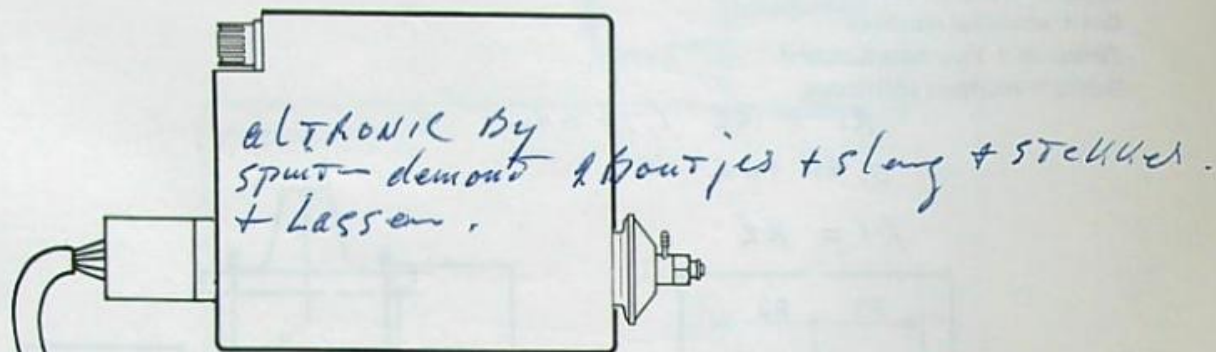 alTRONIC By
spuit demont 2 Boutjes + slang + STekker.
+ Lassen.